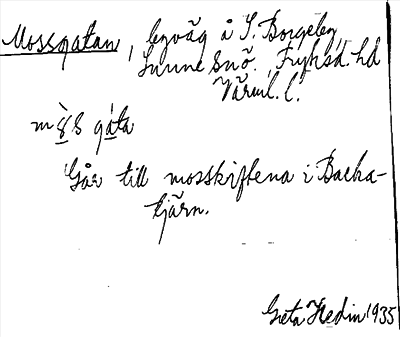 Mossgatan, byväg å S. Borgeby
Sunne snö. Fryksd. hd
Värml. l.
m8̀s gáta
Går till mosskiftena i Backa-
tjärn.
Greta Hedin 1935